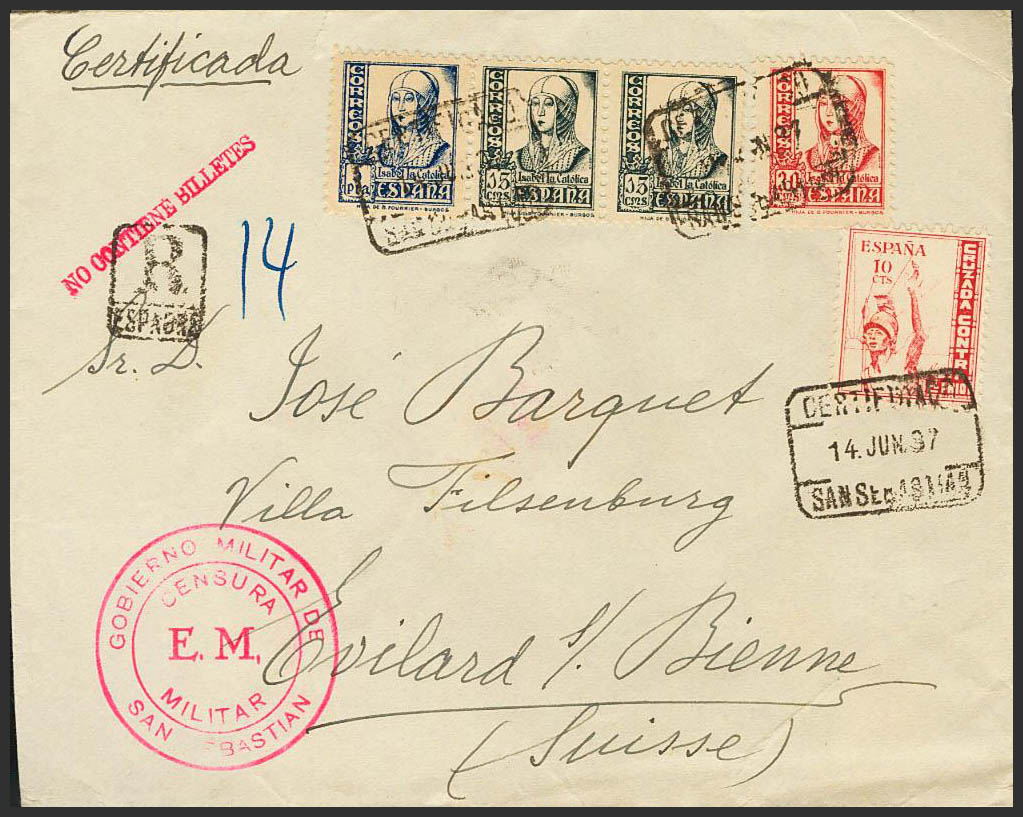 Certificada
CORREOS
Isabel la Católica
1 pta ESPAÑA
DE B. FOURNIER - BURGOS
CORREOS
Isabel la Católica
15 cts. ESPAÑA
CORREOS
Isabel la Católica
15 cts. ESPAÑA
HIJA DE B. FOURNIER - BURGOS
CORREOS
Isabel la Católica
30 ESPAÑA
HIJA DE B. FOURNIER - BURGOS
NO CONTIENE BILLETES
R
ESPAGNE
14
ESPAÑA
10
CTS
CRUZADA CONTRA
FRIO
CERTIFICADO
14. JUN. 37
SAN SEBASTIAN
Sr. D. José Barquet
Villa Filsenburg
Evilard s/ Bienne
(Suisse)
GOBIERNO MILITAR DE
CENSURA
E. M.
MILITAR
SAN SEBASTIAN